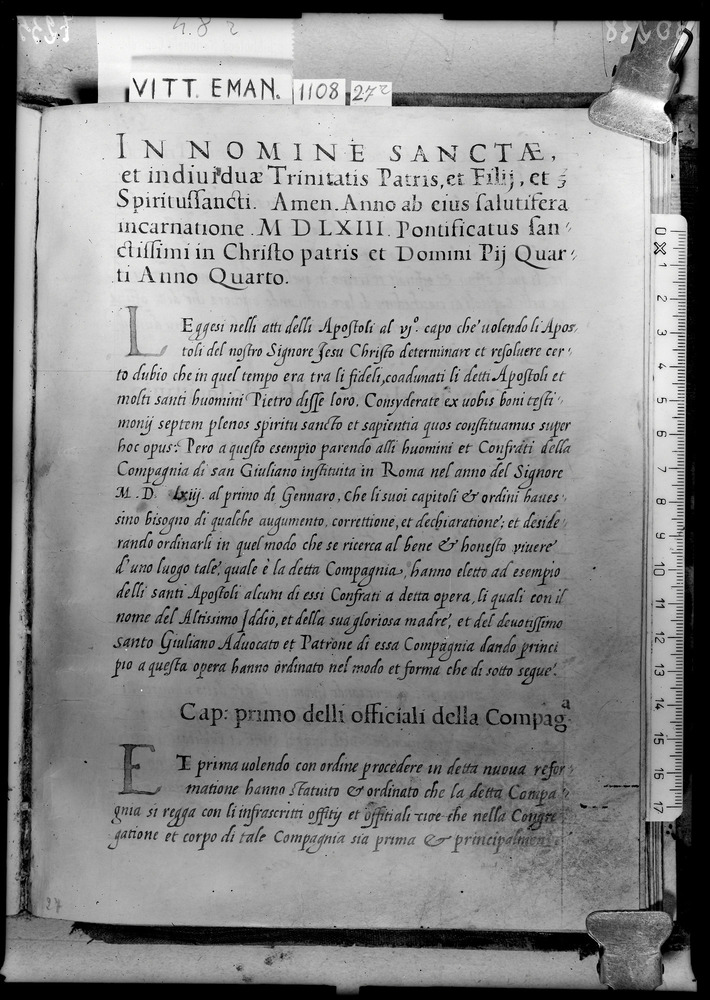 4.8 2
VITT. EMAN. 1108 27r
IN NOMINE SANCTÆ,
et indiuiduæ Trinitatis Patris, et Filij, et
Spiritussancti. Amen. Anno ab eius salutifera
incarnatione. M D LXIII. Pontificatus san
ctissimi in Christo patris et Domini Pij Quar
ti Anno Quarto.
LEggesi nelli atti delli Apostoli al vjº. capo che uolendo li Apos
toli del nostro Signore Jesu Christo determinare et resoluere cer
to dubio che in quel tempo era tra li fideli, coadunati li detti Apostoli et
molti santi huomini Pietro disse loro. Consyderate ex uobis boni testi
monij septem plenos spiritu sancto et sapientia quos constituamus super
hoc opus: Pero a questo esempio parendo alli huomini et Confrati della
Compagnia di san Giuliano instituita in Roma nel anno del Signore
M. D. Lxiij. al primo di Gennaro, che li suoi capitoli & ordini haues
sino bisogno di qualche augumento, correttione, et dechiaratione: et deside
rando ordinarli in quel modo che se ricerca al bene & honesto viuere
d'uno luogo tale, quale è la detta Compagnia, hanno eletto ad esempio
delli santi Apostoli alcuni di essi Confrati a detta opera, li quali con il
nome del Altissimo Jddio, et della sua gloriosa madre, et del deuotissimo
santo Giuliano Aduocato et Patrone di essa Compagnia dando princi
pio a questa opera hanno ordinato nel modo et forma che di sotto segue.
Cap: primo delli officiali della Compagª
ET prima uolendo con ordine procedere in detta nuoua refor
matione hanno statuito & ordinato che la detta Compa
gnia si regga con li infrascritti offitij et offitiali cioe che nella Congre
gatione et corpo di tale Compagnia sia prima & principalmente
27
0 1 2 3 4 5 6 7 8 9 10 11 12 13 14 15 16 17